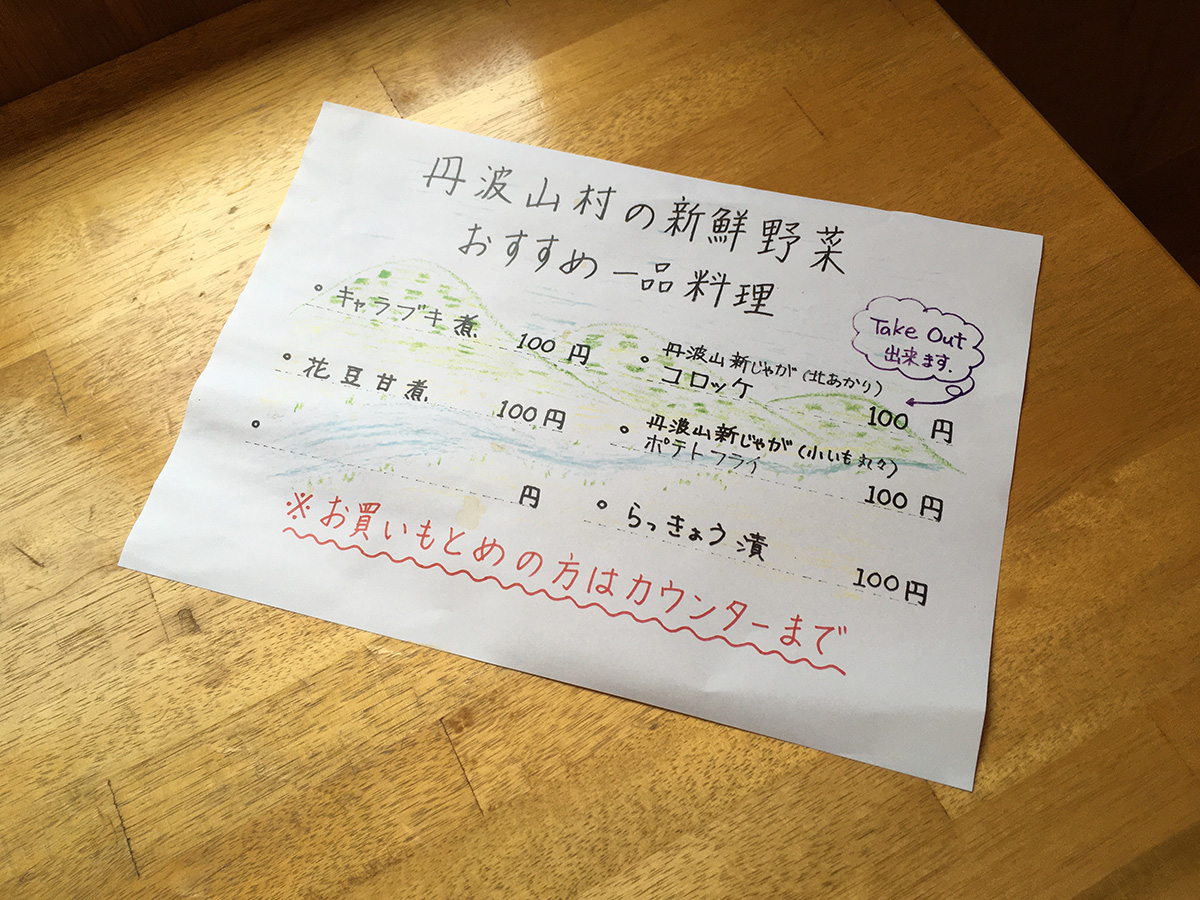 丹波山村の新鮮野菜
おすすめ一品料理
。キャラブキ煮
100 円
。花豆甘煮
100円
。
円
Take Out
出来ます.
。丹波山新じゃが(北あかり)
コロッケ
100 円
。丹波山新じゃが(小いも丸々)
ポテトフライ
100円
。らっきょう漬
100円
※お買いもとめの方はカウンターまで